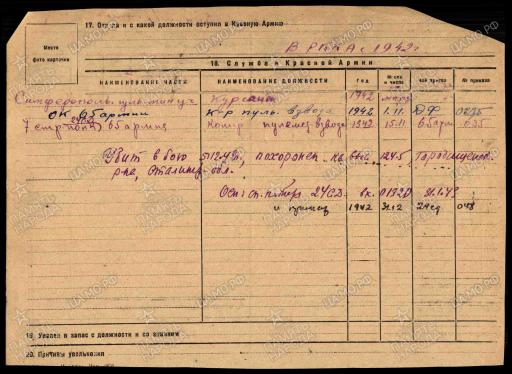 17. Откуда и с какой должности вступил в Красную Армию
Место
фото карточки
В РККА с 1942 г.
18. Служба в Красной Армии
НАИМЕНОВАНИЕ ЧАСТИ НАИМЕНОВАНИЕ ДОЛЖНОСТИ ГОД М-ЦА и число ЧЕЙ ПРИКАЗ № ПРИКАЗА
Симферополь. уч-ще Курсант 1942
ОК 6 армии К-р пульвзвода 1942 1.11. ЮФ
7 стр. полк 24 СД 6 армия Комир пулемет взвода 1942 15.11 6 арм. 035
Убит в бою 5.12.42г., похоронен на выс. 124.5 Городищенс.
р-на, Сталингр. обл.
Осн: сп. потерь 24 СД. вх. 0192 31.1.43
и приказ 1942 31.12 24 сд 048
19. Уволен в запас с должности и со званием
20. Причины увольнения